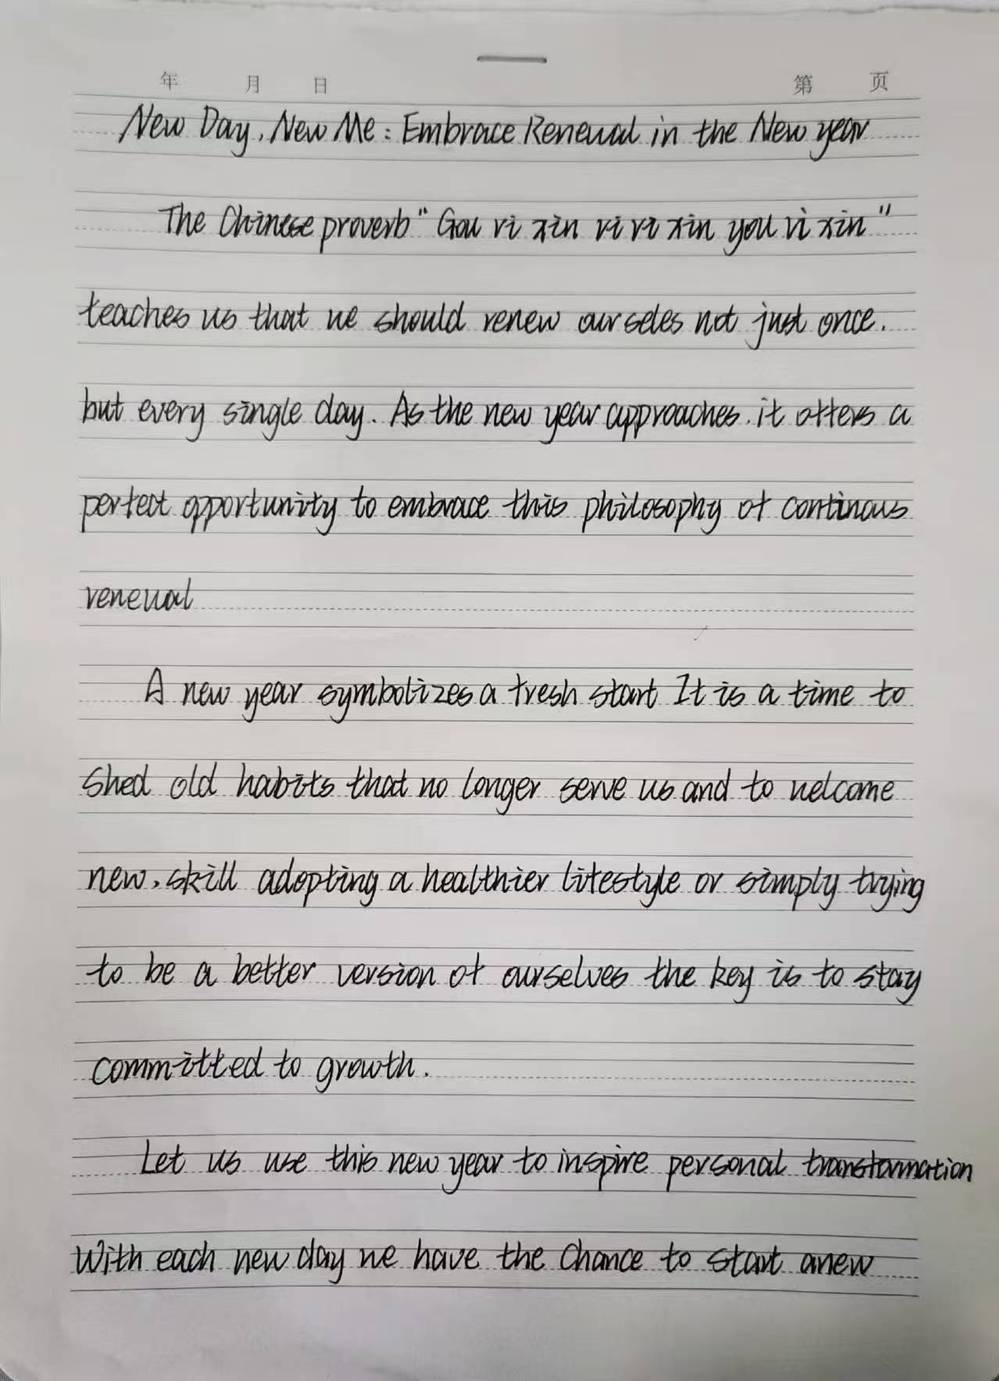 年 月 日 第 页
New Day, New Me: Embrace Renewal in the New year
The Chinese proverb "Gou ri xin ri ri xin you ri xin"
teaches us that we should renew ourseles not just once.
but every single day. As the new year approaches. it offers a
perfect opportunity to embrace this philosophy of continous
renewal
A new year symbolizes a fresh start It is a time to
shed old habits that no longer serve us and to welcome
new, skill adopting a healthier lifestyle or simply trying
to be a better version of ourselves the key is to stay
committed to growth.
Let us use this new year to inspire personal transformation
With each new day we have the chance to start anew